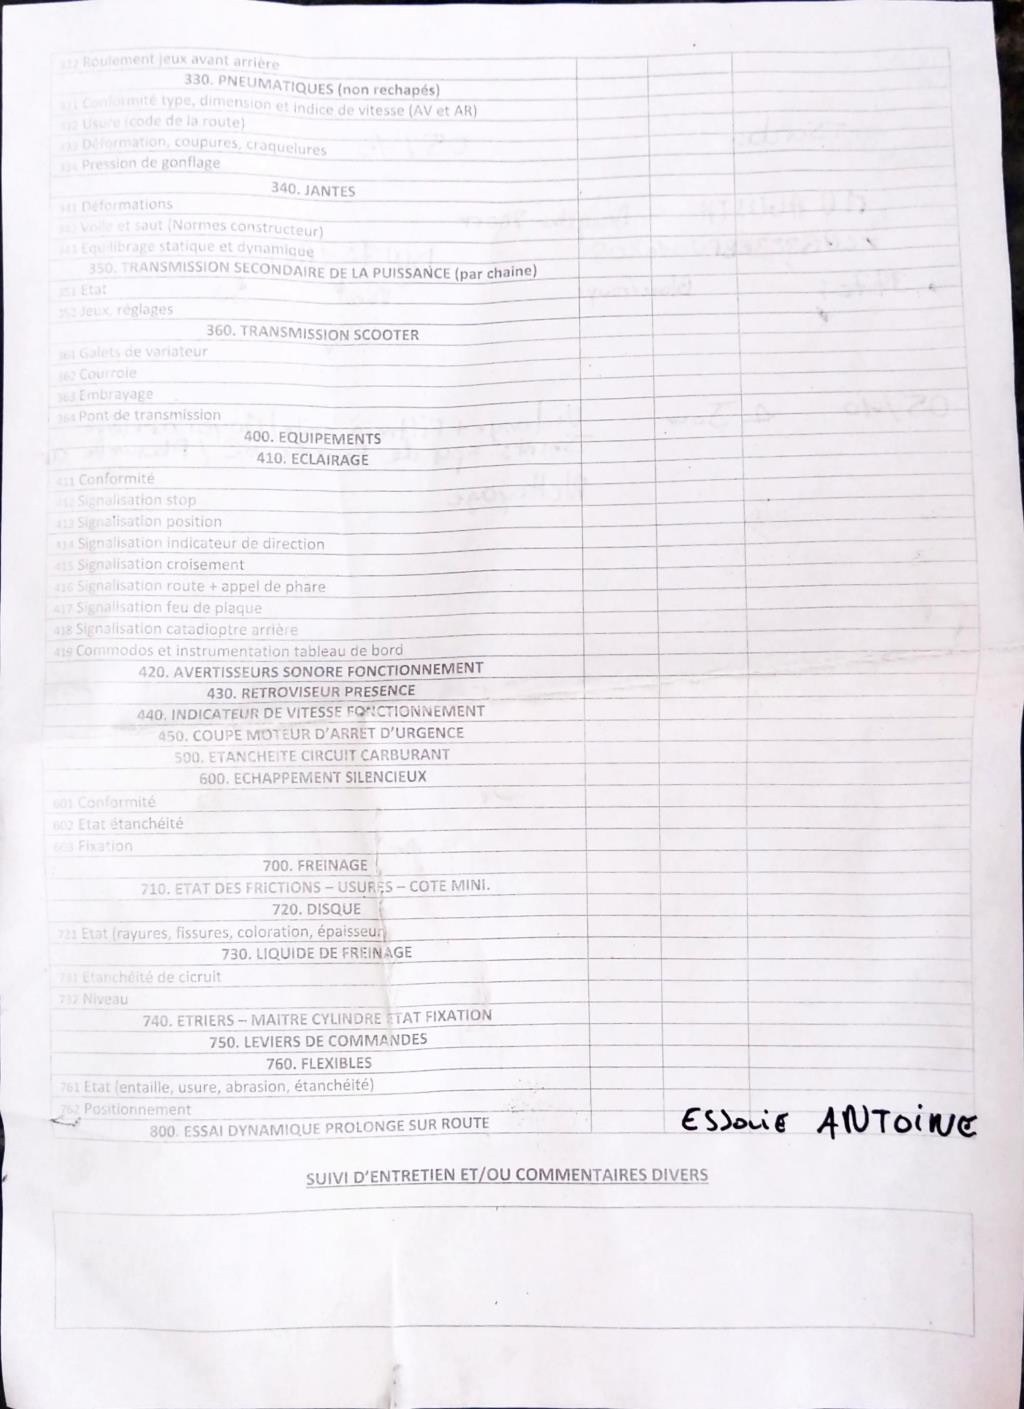 322 Roulement jeux avant arrière
330. PNEUMATIQUES (non rechapés)
331 Conformité type, dimension et indice de vitesse (AV et AR)
332 Usure (code de la route)
333 Déformation, coupures, craquelures
334 Pression de gonflage
340. JANTES
341 Déformations
342 Voile et saut (Normes constructeur)
343 Equilibrage statique et dynamique
350. TRANSMISSION SECONDAIRE DE LA PUISSANCE (par chaine)
351 Etat
352 Jeux, réglages
360. TRANSMISSION SCOOTER
361 Galets de variateur
362 Courroie
363 Embrayage
364 Pont de transmission
400. EQUIPEMENTS
410. ECLAIRAGE
411 Conformité
412 Signalisation stop
413 Signalisation position
414 Signalisation indicateur de direction
415 Signalisation croisement
416 Signalisation route + appel de phare
417 Signalisation feu de plaque
418 Signalisation catadioptre arrière
419 Commodos et instrumentation tableau de bord
420. AVERTISSEURS SONORE FONCTIONNEMENT
430. RETROVISEUR PRESENCE
440. INDICATEUR DE VITESSE FONCTIONNEMENT
450. COUPE MOTEUR D'ARRET D'URGENCE
500. ETANCHEITE CIRCUIT CARBURANT
600. ECHAPPEMENT SILENCIEUX
601 Conformité
602 Etat étanchéité
603 Fixation
700. FREINAGE
710. ETAT DES FRICTIONS – USURES – COTE MINI.
720. DISQUE
721 Etat (rayures, fissures, coloration, épaisseur)
730. LIQUIDE DE FREINAGE
731 Etanchéité de cicruit
732 Niveau
740. ETRIERS – MAITRE CYLINDRE ETAT FIXATION
750. LEVIERS DE COMMANDES
760. FLEXIBLES
761 Etat (entaille, usure, abrasion, étanchéité)
762 Positionnement
800. ESSAI DYNAMIQUE PROLONGE SUR ROUTE ANTOINE
SUIVI D'ENTRETIEN ET/OU COMMENTAIRES DIVERS